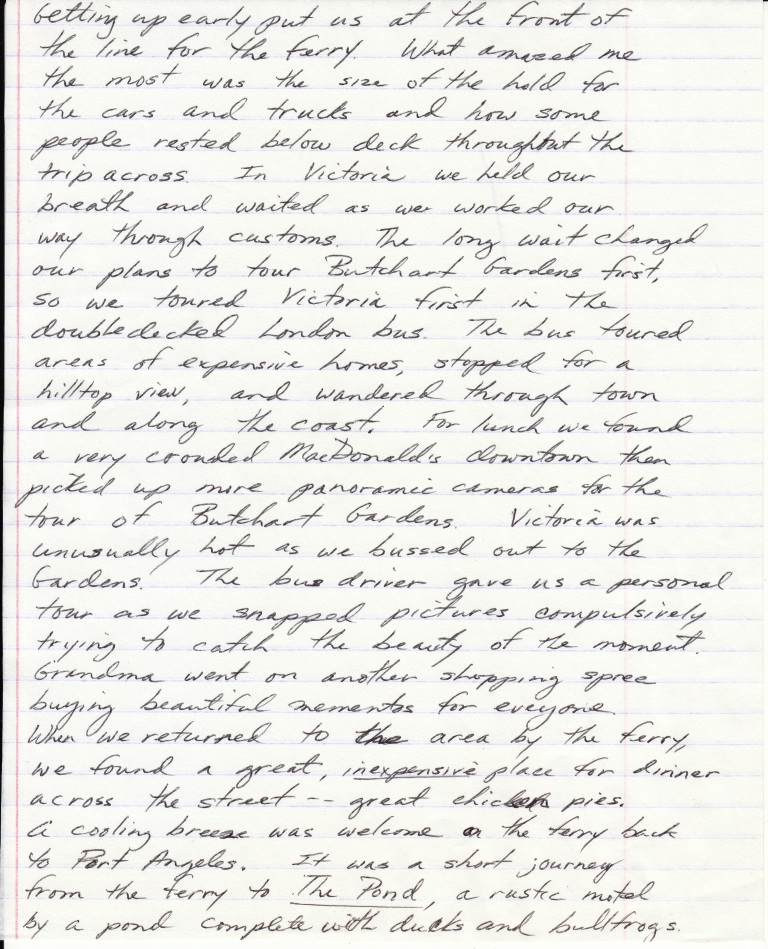 Getting up early put us at the front of
the line for the ferry. What amazed me
the most was the size of the hold for
the cars and trucks and how some
people rested below deck throughout the
trip across. In Victoria we held our
breath and waited as we worked our
way through customs. The long wait changed
our plans to tour Butchart Gardens first,
so we toured Victoria first in the
doubledecked London bus. The bus toured
areas of expensive homes, stopped for a
hilltop view, and wandered through town
and along the coast. For lunch we found
a very crowded MacDonald's downtown then
picked up more panoramic cameras for the
tour of Butchart Gardens. Victoria was
unusually hot as we bussed out to the
Gardens. The bus driver gave us a personal
tour as we snapped pictures compulsively
trying to catch the beauty of the moment.
Grandma went on another shopping spree
buying beautiful mementos for everyone.
When we returned to the area by the ferry,
we found a great, inexpensive place for dinner
across the street -- great chicken pies.
A cooling breeze was welcome on the ferry back
to Port Angeles. It was a short journey
from the ferry to The Pond, a rustic motel
by a pond complete with ducks and bullfrogs.